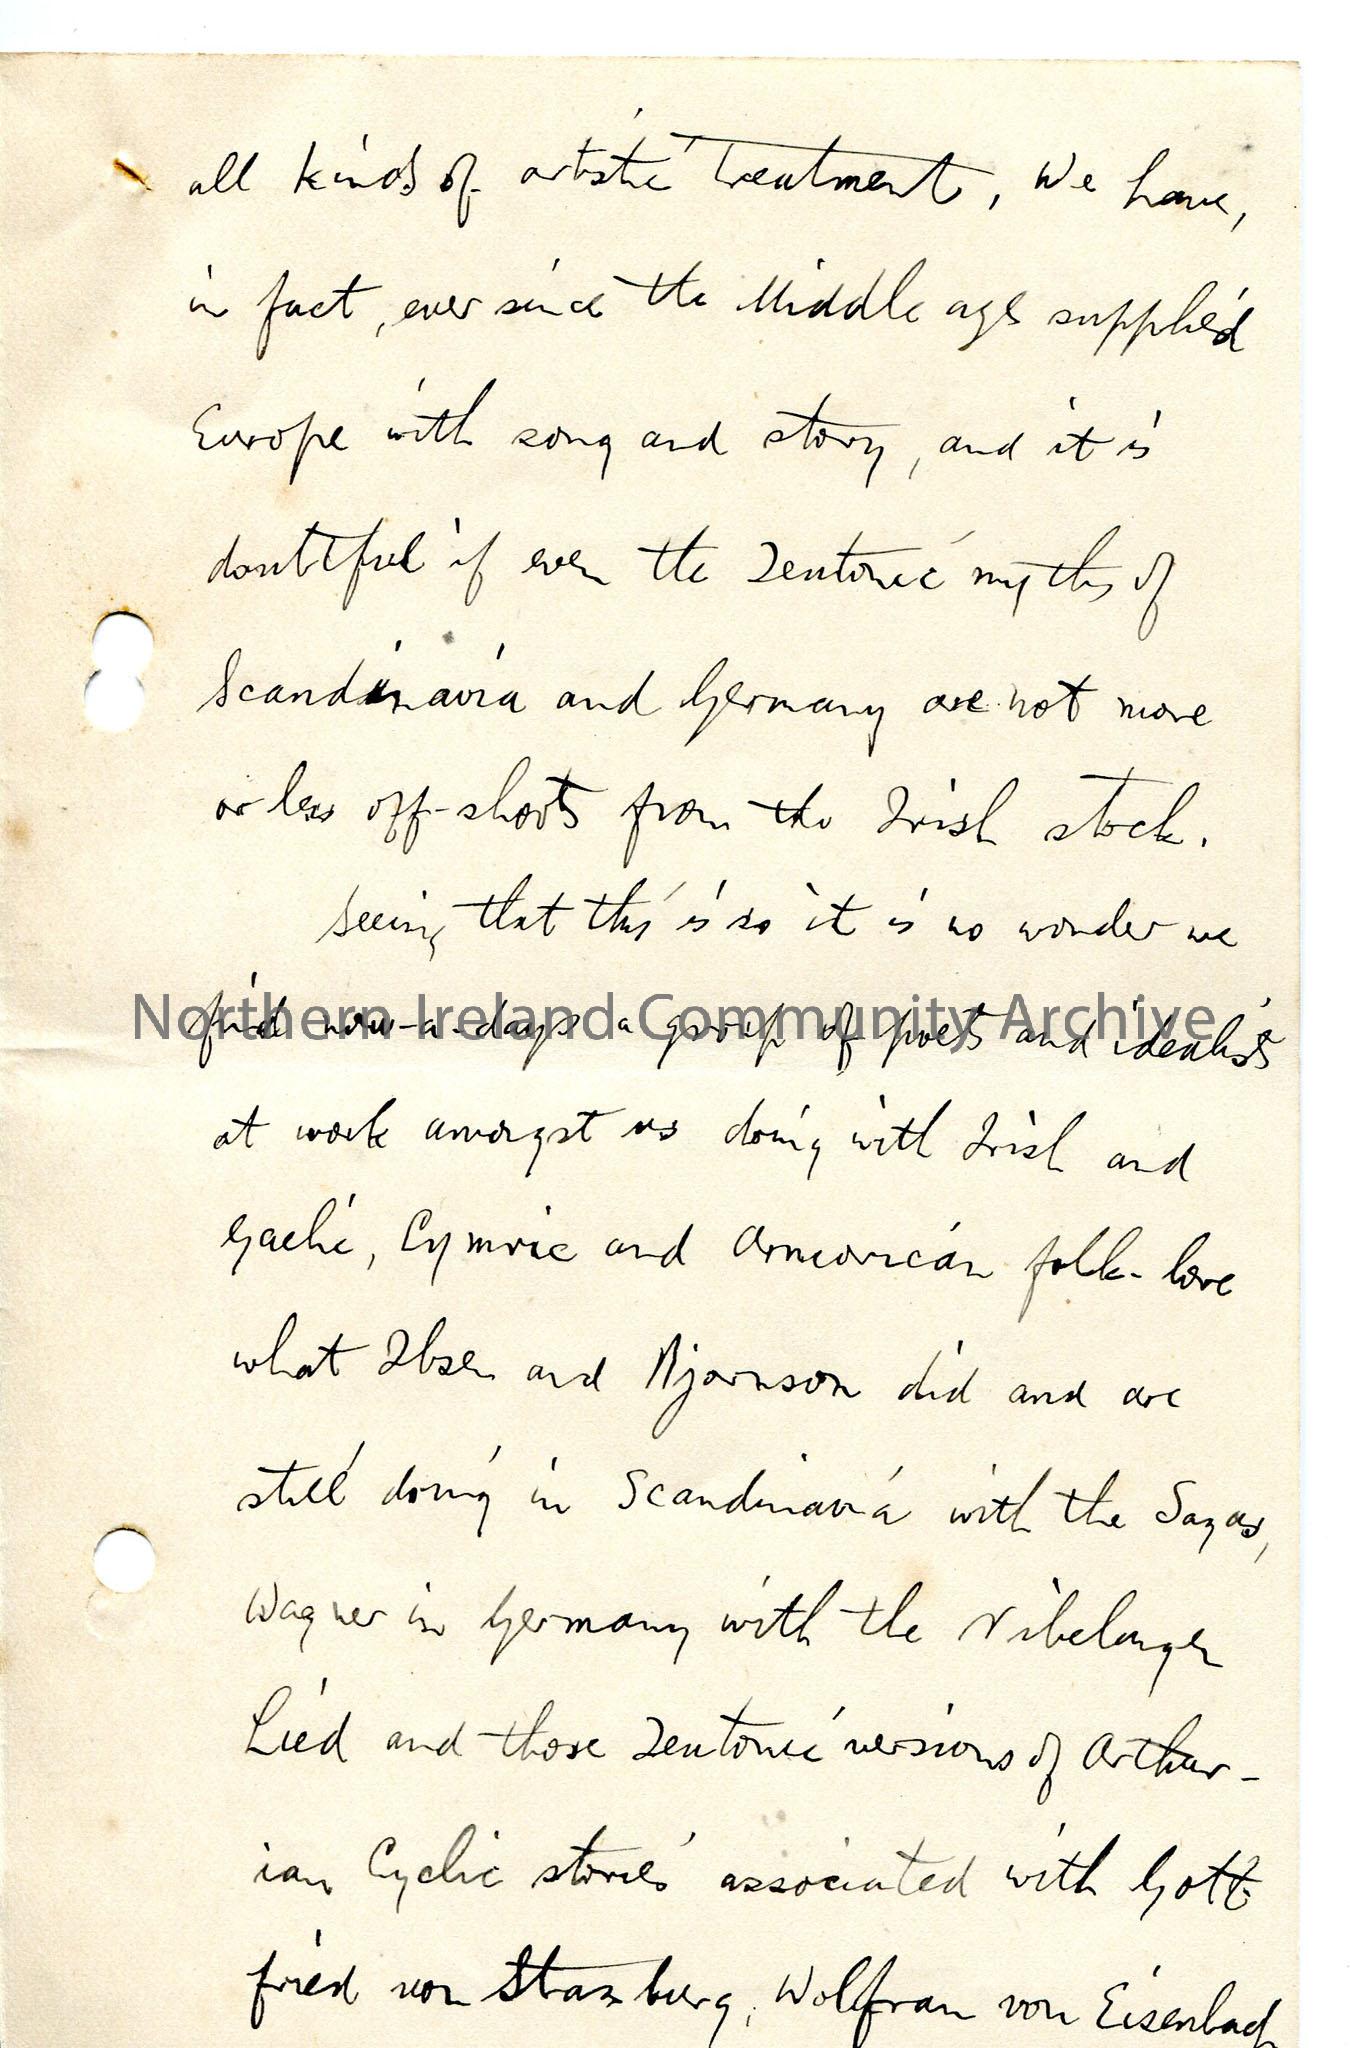 all kinds of artistic treatment, We have,
in fact, ever since the Middle ages supplied
Europe with song and story, and it is
doubtful if even the Teutonic myths of
Scandinavia and Germany are not more
or less off-shoots from the Irish stock.
Seeing that this is so it is no wonder we
find now-a-days a group of poets and idealists
Northern Ireland Community Archive
at work amongst us doing with Irish and
Gaelic, Cymric and Armorican folk-lore
what Ibsen and Bjornson did and are
still doing in Scandinavia with the Sagas,
Wagner in Germany with the Nibelungen
Lied and those Teutonic versions of Arthur-
ian Cyclic stories associated with Gott-
fried von Strasburg, Wolfram von Eisenbach